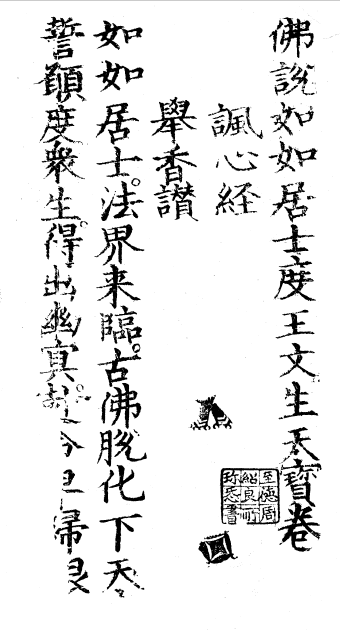 佛說如如居士度王文生天寶卷
諷心経
舉香讃
如如居士。法界来臨。古佛脱化下天
誓願度衆生。得出幽冥。今 歸
至德周
紹良所
珍悉書